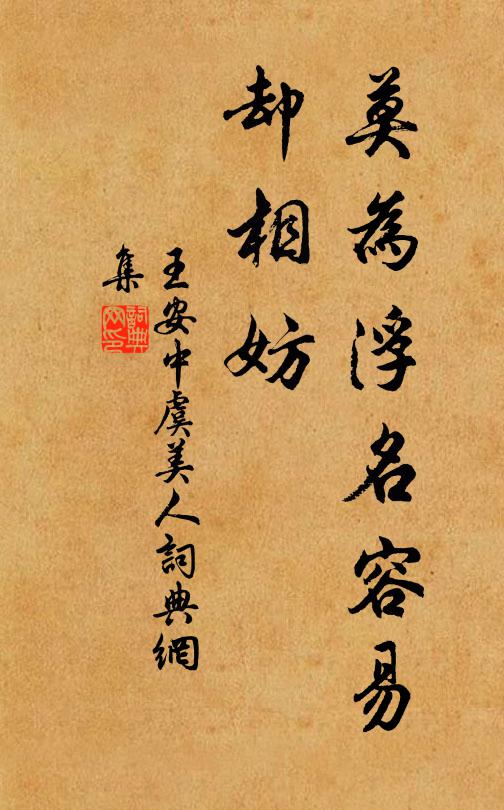 莫為浮名容易
却相妨
王安中虞美人詞典網
集
詞典网印